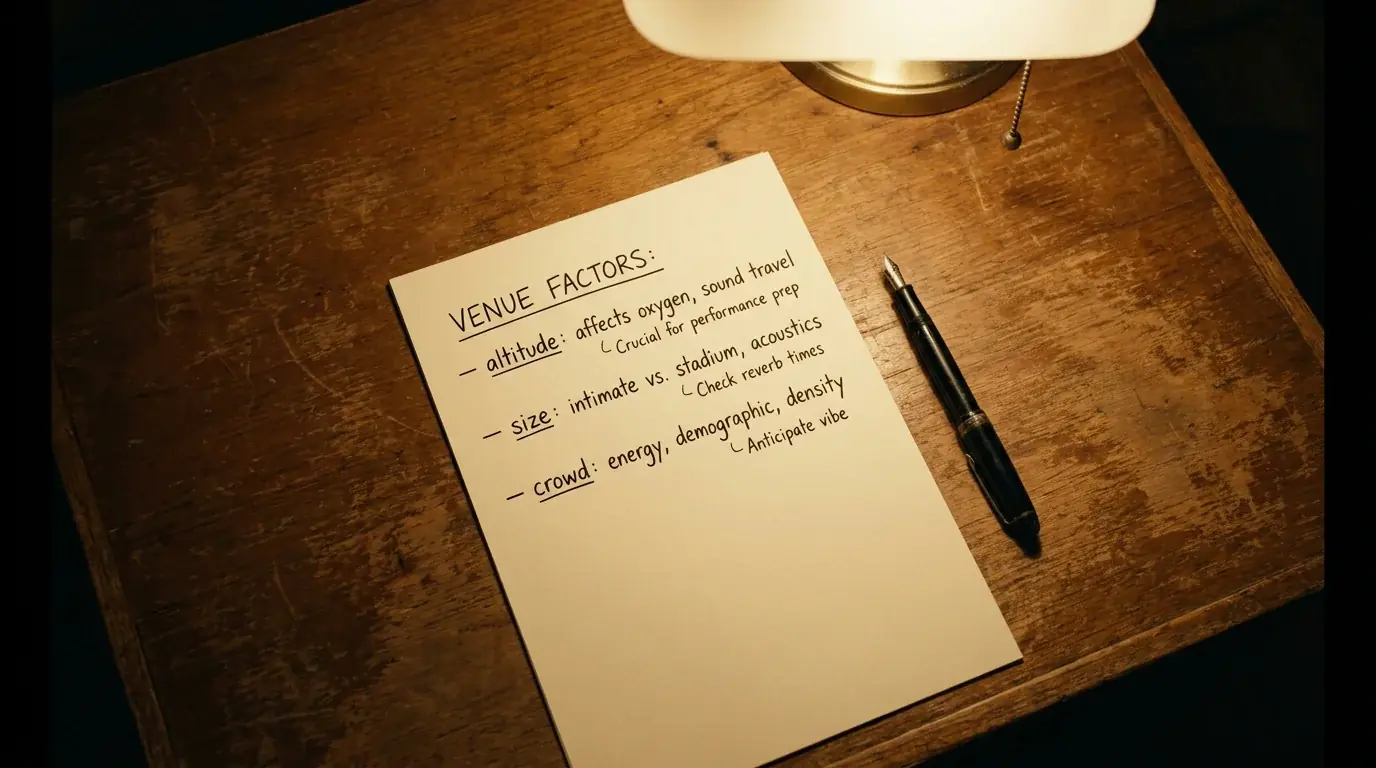 VENUE FACTORS:
– altitude: affects oxygen, sound travel
└ Crucial for performance prep
– size: intimate vs. stadium, acoustics
└ Check reverb times
– crowd: energy, demographic, density
└ Anticipate vibe